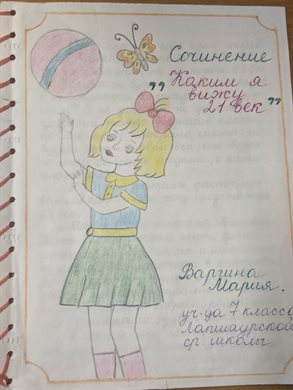 Сочинение
"Каким я
вижу
21 век"
Варгина
Мария,
уч-ца 7 класса
Лапшаурской
ср. школы.